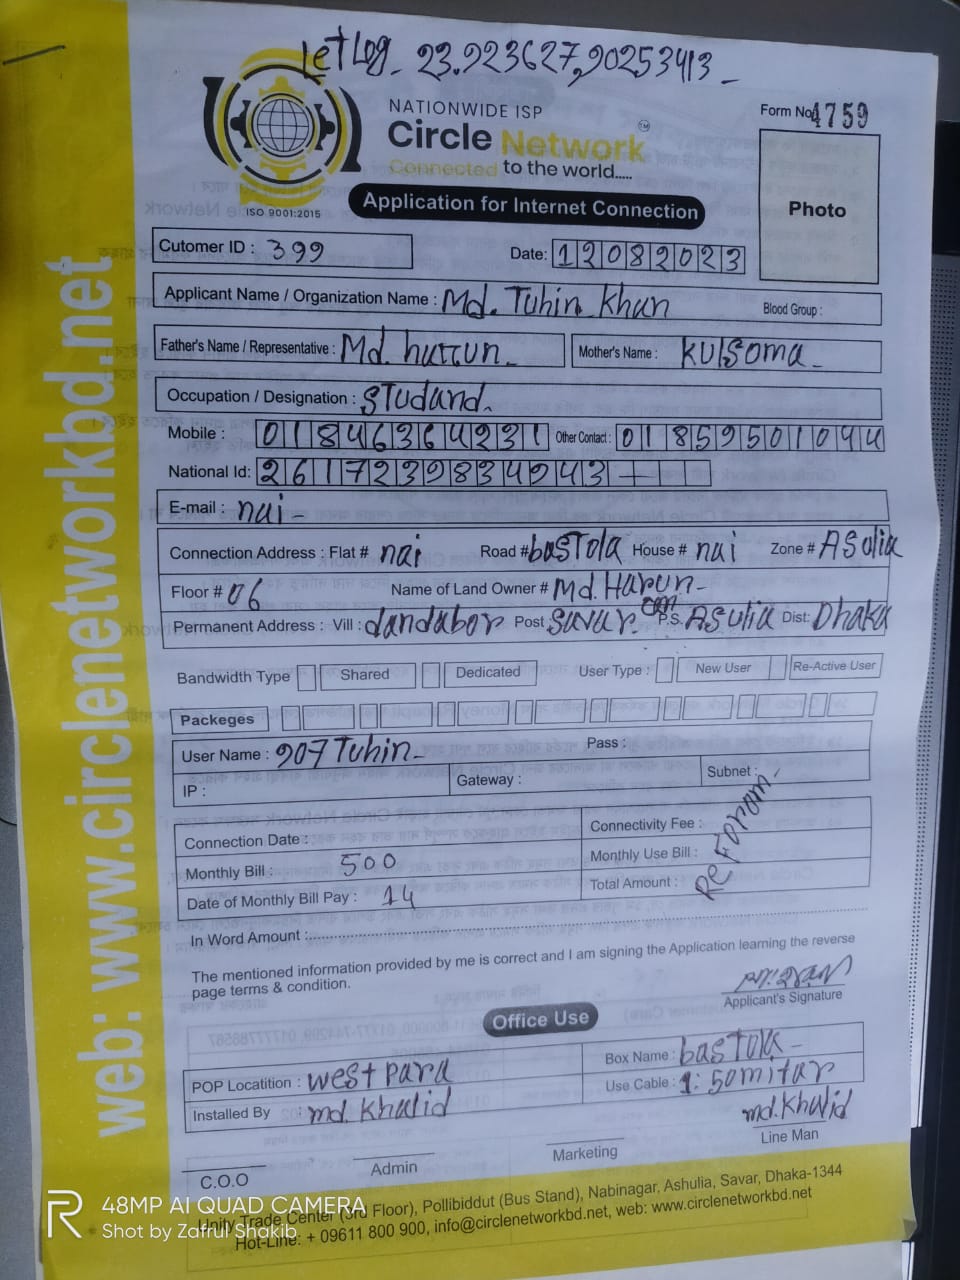 LeTLog_ 23.923627,90253413_
NATIONWIDE ISP
Circle Network TM
Connected to the world.....
ISO 9001:2015
Form No 4759
Photo
Application for Internet Connection
Cutomer ID : 399
Date: 12082023
Applicant Name / Organization Name : Md. Tuhin Khan Blood Group :
Father's Name / Representative : Md. harrun_ Mother's Name : Kulsoma_
Occupation / Designation : STudand.
Mobile : 01846364231 Other Contact : 01859501044
National Id: 2617239834943
E-mail : nai-
Connection Address : Flat # nai Road # basTola House # nai Zone # ASulia
Floor # 06 Name of Land Owner # Md. Harun-
Permanent Address : Vill : dandabor Post Savar. P.S. ASulia Dist: Dhaka
Bandwidth Type Shared Dedicated User Type : New User Re-Active User
Packeges
User Name : 907Tuhin_ Pass :
IP : Gateway : Subnet :
Connection Date : Connectivity Fee :
Monthly Bill : 500 Monthly Use Bill :
Date of Monthly Bill Pay : 14 Total Amount :
Re Foram
In Word Amount :
The mentioned information provided by me is correct and I am signing the Application learning the reverse
page terms & condition.
Applicant's Signature
Office Use
POP Locatition : west para Box Name : basTola-
Installed By : md. Khalid Use Cable : 1: 50mitar
md. Khalid
C.O.O Admin Marketing Line Man
Unity Trade Center (3rd Floor), Pollibiddut (Bus Stand), Nabinagar, Ashulia, Savar, Dhaka-1344
Hot-Line: + 09611 800 900, info@circlenetworkbd.net, web: www.circlenetworkbd.net
web: www.circlenetworkbd.net
48MP AI QUAD CAMERA
Shot by Zafrul Shakib